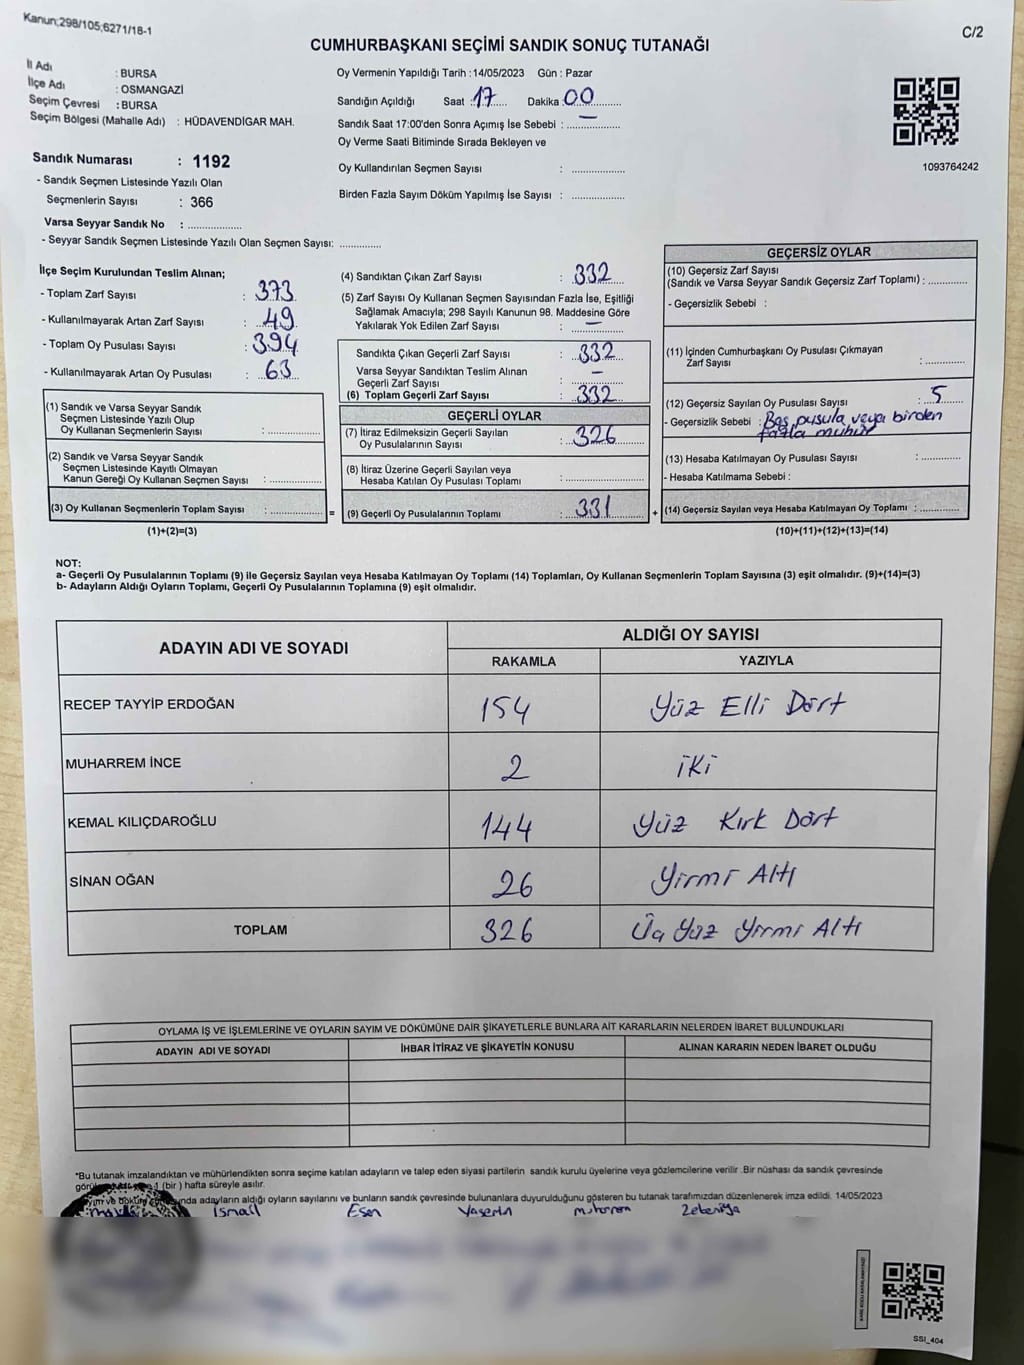 Kanun;298/105;6271/18-1
C/2
CUMHURBAŞKANI SEÇİMİ SANDIK SONUÇ TUTANAĞI
İl Adı : BURSA
İlçe Adı : OSMANGAZİ
Seçim Çevresi : BURSA
Seçim Bölgesi (Mahalle Adı) : HÜDAVENDİGAR MAH.
Sandık Numarası : 1192
- Sandık Seçmen Listesinde Yazılı Olan
Seçmenlerin Sayısı : 366
Varsa Seyyar Sandık No : ..................
- Seyyar Sandık Seçmen Listesinde Yazılı Olan Seçmen Sayısı: .............
Oy Vermenin Yapıldığı Tarih : 14/05/2023 Gün : Pazar
Sandığın Açıldığı Saat : 17 Dakika : 00
Sandık Saat 17:00'den Sonra Açımış İse Sebebi : —
Oy Verme Saati Bitiminde Sırada Bekleyen ve
Oy Kullandırılan Seçmen Sayısı : ..................
Birden Fazla Sayım Döküm Yapılmış İse Sayısı : ..................
1093764242
İlçe Seçim Kurulundan Teslim Alınan;
- Toplam Zarf Sayısı : 373
- Kullanılmayarak Artan Zarf Sayısı : 49
- Toplam Oy Pusulası Sayısı : 394
- Kullanılmayarak Artan Oy Pusulası : 63
(1) Sandık ve Varsa Seyyar Sandık
Seçmen Listesinde Yazılı Olup
Oy Kullanan Seçmenlerin Sayısı : ..................
(2) Sandık ve Varsa Seyyar Sandık
Seçmen Listesinde Kayıtlı Olmayan
Kanun Gereği Oy Kullanan Seçmen Sayısı : ..................
(3) Oy Kullanan Seçmenlerin Toplam Sayısı : .................. =
(1)+(2)=(3)
(4) Sandıktan Çıkan Zarf Sayısı : 332
(5) Zarf Sayısı Oy Kullanan Seçmen Sayısından Fazla İse, Eşitliği
Sağlamak Amacıyla; 298 Sayılı Kanunun 98. Maddesine Göre
Yakılarak Yok Edilen Zarf Sayısı : —
Sandıkta Çıkan Geçerli Zarf Sayısı : 332
Varsa Seyyar Sandıktan Teslim Alınan
Geçerli Zarf Sayısı : —
(6) Toplam Geçerli Zarf Sayısı : 332
GEÇERLİ OYLAR
(7) İtiraz Edilmeksizin Geçerli Sayılan
Oy Pusulalarının Sayısı : 326
(8) İtiraz Üzerine Geçerli Sayılan veya
Hesaba Katılan Oy Pusulası Toplamı : ..................
(9) Geçerli Oy Pusulalarının Toplamı : 331 +
GEÇERSİZ OYLAR
(10) Geçersiz Zarf Sayısı
(Sandık ve Varsa Seyyar Sandık Geçersiz Zarf Toplamı) : .............
- Geçersizlik Sebebi :
(11) İçinden Cumhurbaşkanı Oy Pusulası Çıkmayan
Zarf Sayısı : .............
(12) Geçersiz Sayılan Oy Pusulası Sayısı : 5
- Geçersizlik Sebebi : Boş pusula veya birden
fazla mühür
(13) Hesaba Katılmayan Oy Pusulası Sayısı : .............
- Hesaba Katılmama Sebebi :
(14) Geçersiz Sayılan veya Hesaba Katılmayan Oy Toplamı : .............
(10)+(11)+(12)+(13)=(14)
NOT:
a- Geçerli Oy Pusulalarının Toplamı (9) ile Geçersiz Sayılan veya Hesaba Katılmayan Oy Toplamı (14) Toplamları, Oy Kullanan Seçmenlerin Toplam Sayısına (3) eşit olmalıdır. (9)+(14)=(3)
b- Adayların Aldığı Oyların Toplamı, Geçerli Oy Pusulalarının Toplamına (9) eşit olmalıdır.
ADAYIN ADI VE SOYADI
ALDIĞI OY SAYISI
RAKAMLA YAZIYLA
RECEP TAYYİP ERDOĞAN 154 Yüz Elli Dört
MUHARREM İNCE 2 iki
KEMAL KILIÇDAROĞLU 144 Yüz Kırk Dört
SİNAN OĞAN 26 Yirmi Altı
TOPLAM 326 Üç Yüz Yirmi Altı
OYLAMA İŞ VE İŞLEMLERİNE VE OYLARIN SAYIM VE DÖKÜMÜNE DAİR ŞİKAYETLERLE BUNLARA AİT KARARLARIN NELERDEN İBARET BULUNDUKLARI
ADAYIN ADI VE SOYADI İHBAR İTİRAZ VE ŞİKAYETİN KONUSU ALINAN KARARIN NEDEN İBARET OLDUĞU
*Bu tutanak imzalandıktan ve mühürlendikten sonra seçime katılan adayların ve talep eden siyasi partilerin sandık kurulu üyelerine veya gözlemcilerine verilir .Bir nüshası da sandık çevresinde
1 (bir ) hafta süreyle asılır.
adayların aldığı oyların sayılarını ve bunların sandık çevresinde bulunanlara duyurulduğunu gösteren bu tutanak tarafımızdan düzenlenerek imza edildi. 14/05/2023
İsmail Esen Yasemin Zekeriya
SSI_404